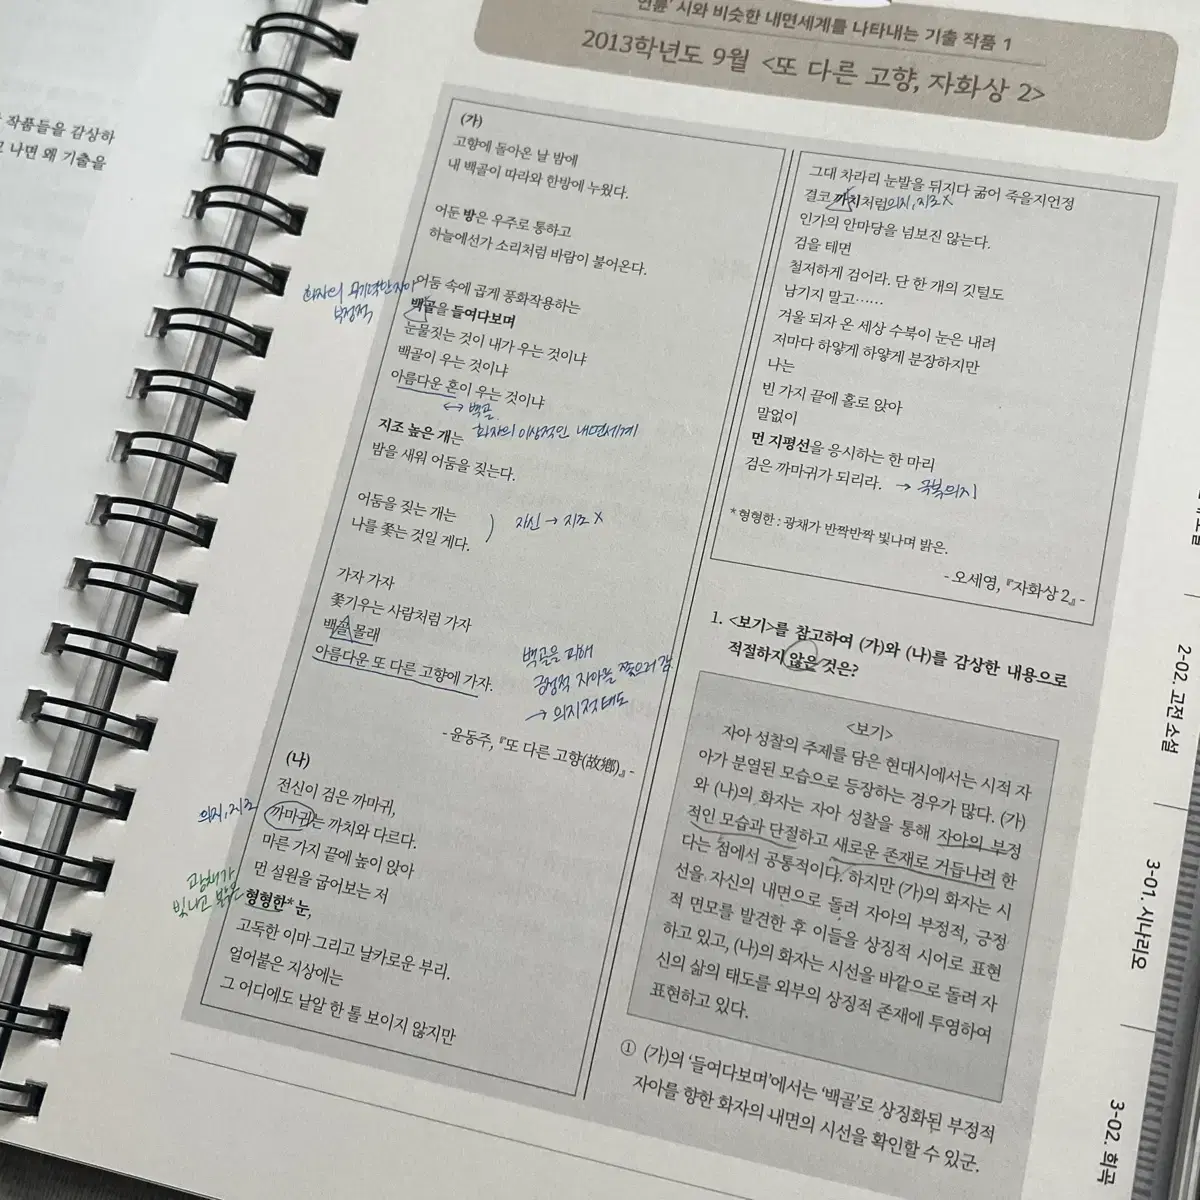 작품들을 감상하
나면 왜 기출을
시와 비슷한 내면세계를 나타내는 기출 작품 1
2013학년도 9월 <또 다른 고향, 자화상 2>
(가)
고향에 돌아온 날 밤에
내 백골이 따라와 한방에 누웠다.
어둔 방은 우주로 통하고
하늘에선가 소리처럼 바람이 불어온다.
어둠 속에 곱게 풍화작용하는
화자의 무기력한 자아
부정적
백골을 들여다보며
눈물짓는 것이 내가 우는 것이냐
백골이 우는 것이냐
아름다운 혼이 우는 것이냐
↔ 백골
지조 높은 개는 화자의 이상적인 내면세계
밤을 새워 어둠을 짖는다.
어둠을 짖는 개는
나를 쫓는 것일 게다.
자신 → 지조 X
가자 가자
쫓기우는 사람처럼 가자
백골 몰래
아름다운 또 다른 고향에 가자.
백골을 피해
긍정적 자아를 찾으러 감
→ 의지적 태도
- 윤동주, 『또 다른 고향(故鄕)』-
(나)
전신이 검은 까마귀,
의지, 지조
까마귀는 까치와 다르다.
마른 가지 끝에 높이 앉아
먼 설원을 굽어보는 저
광채가
빛나고 밝은
형형한* 눈,
고독한 이마 그리고 날카로운 부리.
얼어붙은 지상에는
그 어디에도 낱알 한 톨 보이지 않지만
그대 차라리 눈발을 뒤지다 굶어 죽을지언정
결코 까치처럼 의지, 지조 X
인가의 안마당을 넘보진 않는다.
검을 테면
철저하게 검어라. 단 한 개의 깃털도
남기지 말고……
겨울 되자 온 세상 수북이 눈은 내려
저마다 하얗게 하얗게 분장하지만
나는
빈 가지 끝에 홀로 앉아
말없이
먼 지평선을 응시하는 한 마리
검은 까마귀가 되리라. → 극복의지
*형형한 : 광채가 반짝반짝 빛나며 밝은.
- 오세영, 『자화상 2』-
1. <보기>를 참고하여 (가)와 (나)를 감상한 내용으로
적절하지 않은 것은?
<보기>
자아 성찰의 주제를 담은 현대시에서는 시적 자
아가 분열된 모습으로 등장하는 경우가 많다. (가)
와 (나)의 화자는 자아 성찰을 통해 자아의 부정
적인 모습과 단절하고 새로운 존재로 거듭나려 한
다는 점에서 공통적이다. 하지만 (가)의 화자는 시
선을 자신의 내면으로 돌려 자아의 부정적, 긍정
적 면모를 발견한 후 이들을 상징적 시어로 표현
하고 있고, (나)의 화자는 시선을 바깥으로 돌려 자
신의 삶의 태도를 외부의 상징적 존재에 투영하여
표현하고 있다.
① (가)의 '들여다보며'에서는 '백골'로 상징화된 부정적
자아를 향한 화자의 내면의 시선을 확인할 수 있군.
2-02. 고전 소설
3-01. 시나리오
3-02. 희곡